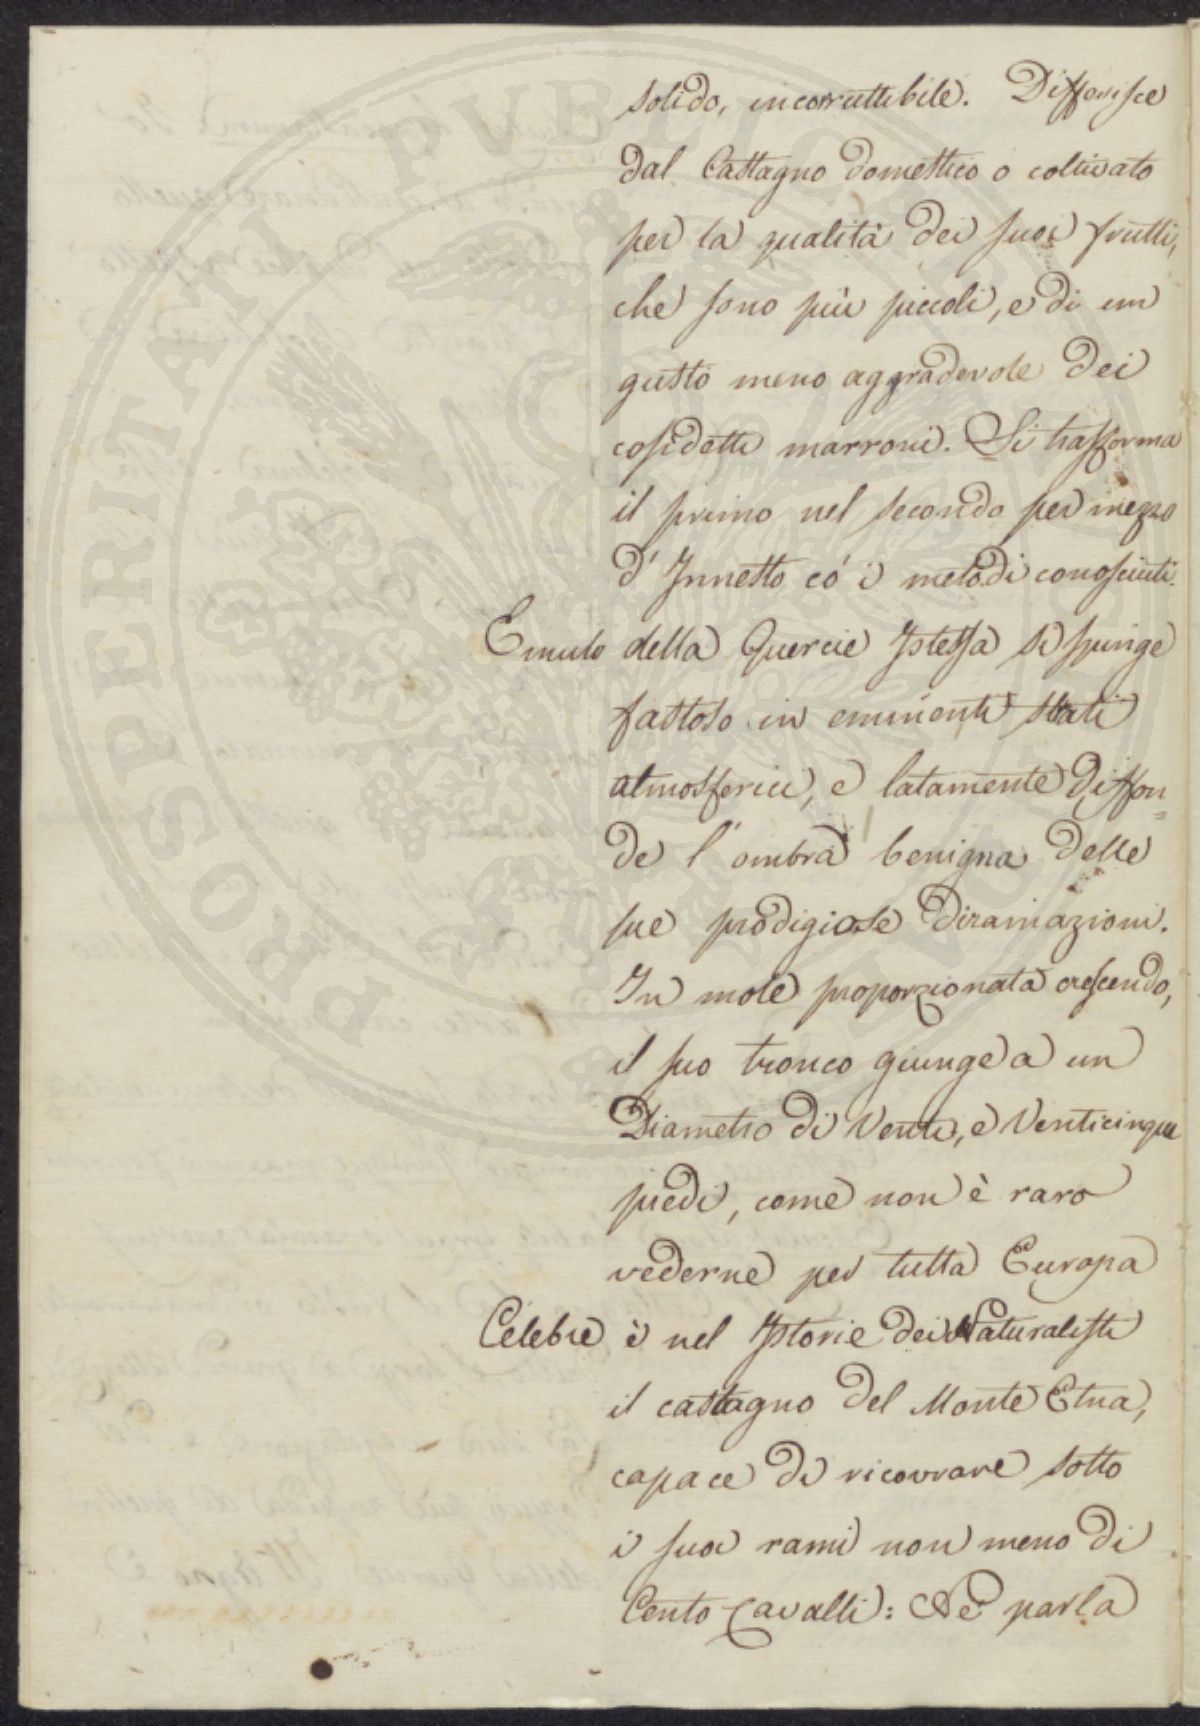 solido, incorruttibile. Differisce
dal Castagno domestico o coltivato
per la qualità dei suoi frutti,
che sono più piccoli, e di un
gusto meno aggradevole dei
cosidetti marroni. Si trasforma
il primo nel secondo per mezzo
d'Innesto có i metodi conosciuti.
Emulo della Quercie Istessa si spinge
fastoso in eminenti stati
atmosferici, e latamente diffon=
de l'ombra benigna delle
sue prodigiose diramazioni.
In mole proporzionata crescendo,
il suo tronco giunge a un
Diametro di Venti, e Venticinque
piedi, come non è raro
vederne per tutta Europa
Celebre è nel Istorie dei Naturalisti
il castagno del Monte Etna,
capace di ricovrare sotto
i suoi rami non meno di
Cento Cavalli: Ne parla
PROSPERITATI PUBLICAE